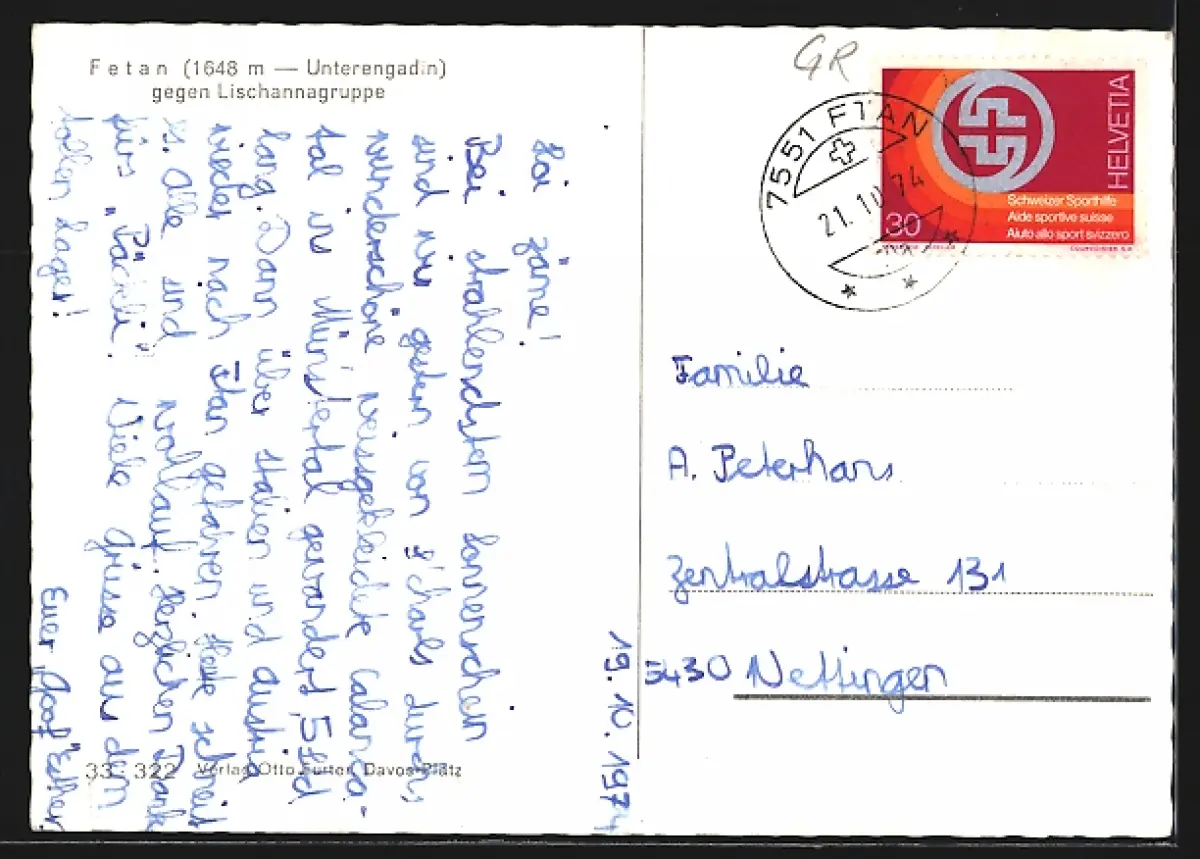 Fetan (1648 m — Unterengadin)
gegen Lischannagruppe
19. 10. 1974
Hoi zäme!
Bei strahlendstem Sonnenschein
sind wir gestern von S'charl durchs
wunderschöne weissgekleidete
tal ins Münstertal gewandert, 5 Std
lang. Dann über Italien und Austria
wieder nach Ftan gefahren. Heute schneit
es. Alle sind wohlauf. Herzlichen Dank
fürs "Päckli". Viele Grüsse aus dem
tollen Lager!
Euer "Goof" Esther
33 322 Verlag Otto Furter, Davos-Platz
GR
7551 FTAN
21. 10. 74
HELVETIA
Schweizer Sporthilfe
Aide sportive suisse
Aiuto allo sport svizzero
30
COURVOISIER S.A.
Familie
A. Peterhans
Zentralstrasse 131
5430 Wettingen